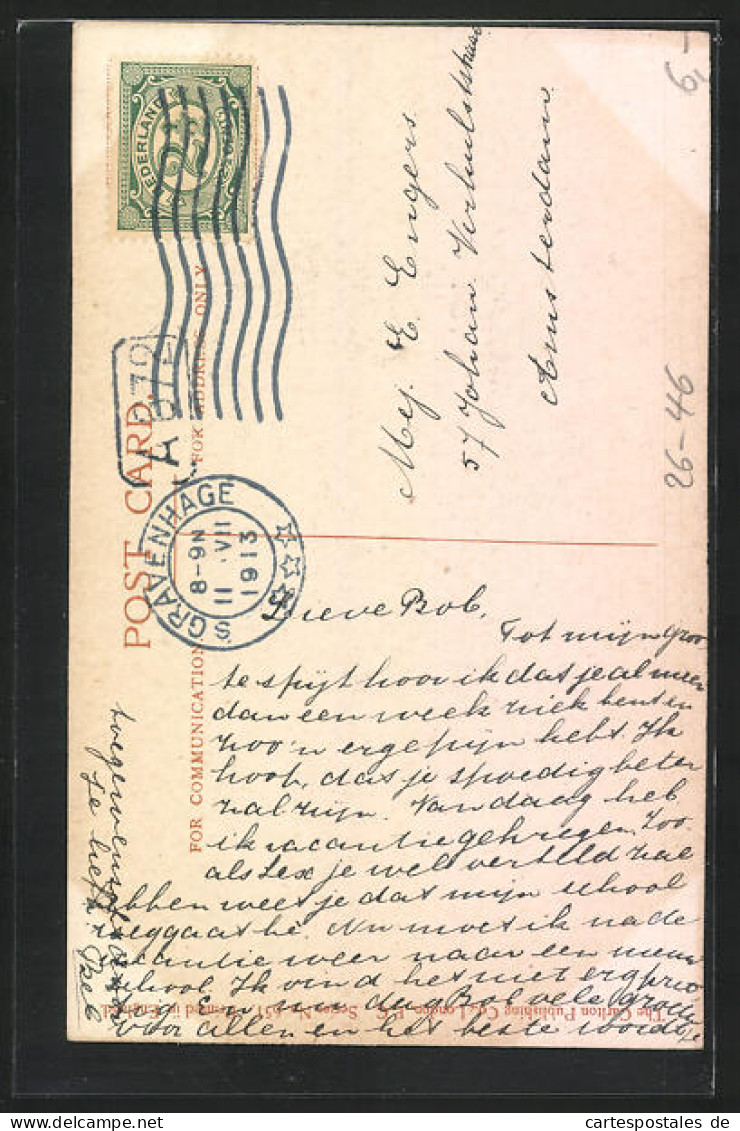 POST CARD.
FOR COMMUNICATION
FOR ADDRESS ONLY
NEDERLAND
2½
CENT
'S GRAVENHAGE
8-9N
11 VII
1913
A
Mej. E. Engers
57 Johan Verhulststraat
Amsterdam
6,-
26-46
Lieve Bob,
Tot mijn groo-
te spijt hoor ik dat je al meer
dan een week ziek bent en
zoo'n erge pijn hebt. Ik
hoop, dat je spoedig beter
zal zijn. Vandaag heb
ik vacantie gekregen. Zoo
als Lex je wel verteld zal
hebben weet je dat mijn school
weggaat hè. Nu moet ik na de
vacantie weer naar een nieuwe
school. Ik vind het niet erg
En nu dag Bob vele groeten
voor allen en het beste
toegewenscht van
je liefh.
The Carlton Publishing Co., London, E.C. Series No. 651/1. Printed in England.
cartespostales.de